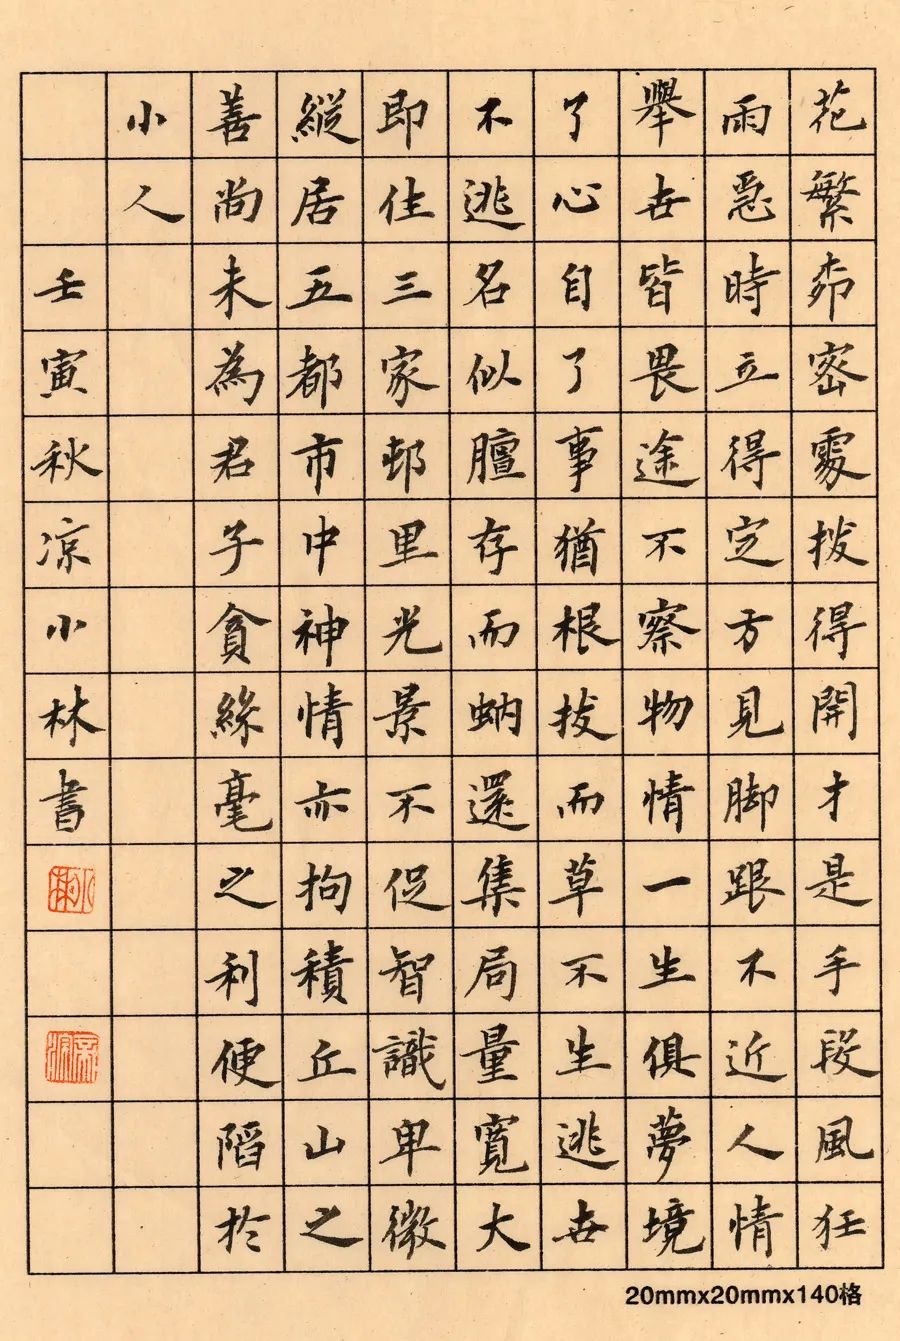 花繁桺密處拨得開才是手段風狂
雨急時立得定方見脚跟不近人情
舉世皆畏途不察物情一生俱夢境
了心自了事猶根拔而草不生逃世
不逃名似膻存而蚋還集局量寬大
即住三家邨里光景不促智識卑微
縱居五都市中神情亦拘積丘山之
善尚未為君子貪絲毫之利便陷於
小人
壬寅秋凉小林書
20mmx20mmx140格